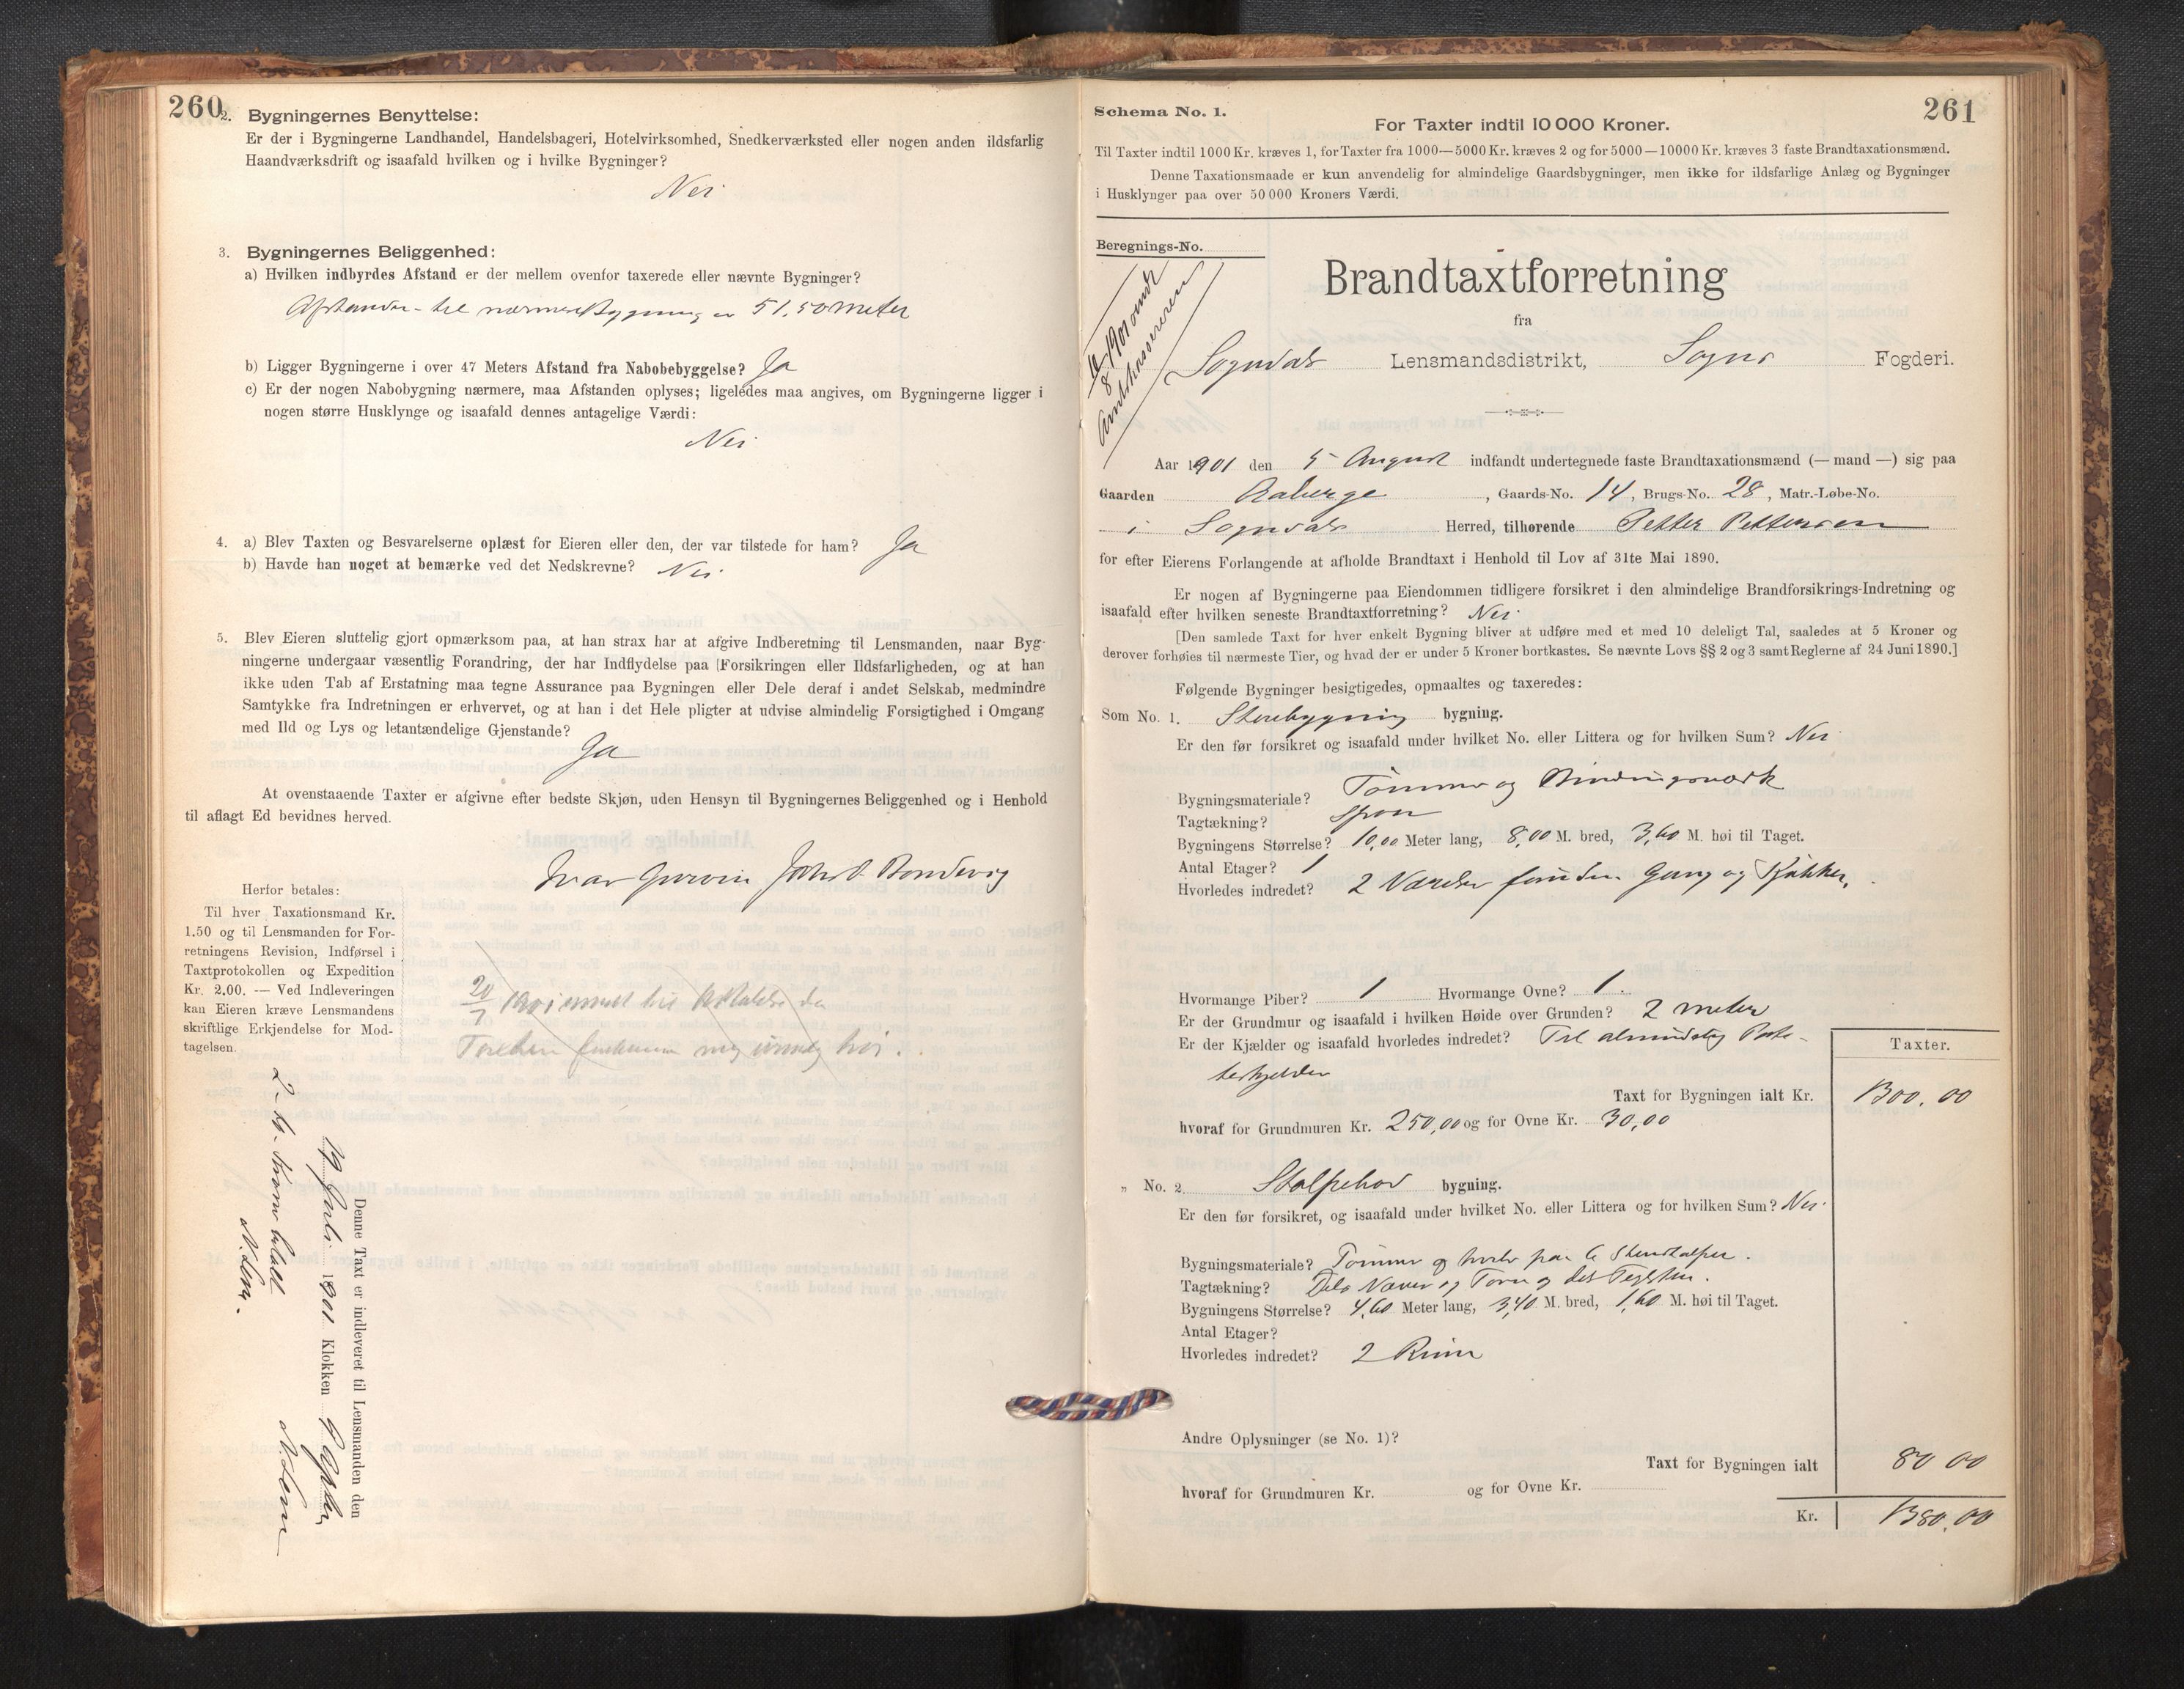 260
2. Bygningernes Benyttelse:
Er der i Bygningerne Landhandel, Handelsbageri, Hotelvirksomhed, Snedkerværksted eller nogen anden ildsfarlig
Haandværksdrift og isaafald hvilken og i hvilke Bygninger?
Nei
3. Bygningernes Beliggenhed:
a) Hvilken indbyrdes Afstand er der mellem ovenfor taxerede eller nævnte Bygninger?
Afstanden til nærmeste Bygning er 51,50 meter
b) Ligger Bygningerne i over 47 Meters Afstand fra Nabobebyggelse? Ja
c) Er der nogen Nabobygning nærmere, maa Afstanden oplyses; ligeledes maa angives, om Bygningerne ligger i
nogen større Husklynge og isaafald dennes antagelige Værdi:
Nei
4. a) Blev Taxten og Besvarelserne oplæst for Eieren eller den, der var tilstede for ham? Ja
b) Havde han noget at bemærke ved det Nedskrevne? Nei
5. Blev Eieren sluttelig gjort opmærksom paa, at han strax har at afgive Indberetning til Lensmanden, naar Byg-
ningerne undergaar væsentlig Forandring, der har Indflydelse paa (Forsikringen eller Ildsfarligheden, og at han
ikke uden Tab af Erstatning maa tegne Assurance paa Bygningen eller Dele deraf i andet Selskab, medmindre
Samtykke fra Indretningen er erhvervet, og at han i det Hele pligter at udvise almindelig Forsigtighed i Omgang
med Ild og Lys og letantændelige Gjenstande?
Ja
At ovenstaaende Taxter er afgivne efter bedste Skjøn, uden Hensyn til Bygningernes Beliggenhed og i Henhold
til aflagt Ed bevidnes herved.
Ivar Jakob Bondevig
Herfor betales:
Til hver Taxationsmand Kr.
1.50 og til Lensmanden for For-
retningens Revision, Indførsel i
Taxtprotokollen og Expedition
Kr. 2.00. — Ved Indleveringen
kan Eieren kræve Lensmandens
skriftlige Erkjendelse for Mod-
tagelsen.
20/7 1901 sendt til da
Taxten mig
Denne Taxt er indleveret til Lensmanden den
19 Juli 1901. Klokken 6
N. Lem
2 - to Kroner betalt
N. Lem.
Schema No. 1.
261
For Taxter indtil 10 000 Kroner.
Til Taxter indtil 1000 Kr. kræves 1, for Taxter fra 1000—5000 Kr. kræves 2 og for 5000—10000 Kr. kræves 3 faste Brandtaxationsmænd.
Denne Taxationsmaade er kun anvendelig for almindelige Gaardsbygninger, men ikke for ildsfarlige Anlæg og Bygninger
i Husklynger paa over 50 000 Kroners Værdi.
Beregnings-No.
10/8 1901 sendt
Amtskassereren
Brandtaxtforretning
fra
Sogndals Lensmandsdistrikt, Sogns Fogderi.
Aar 1901 den 5 August indfandt undertegnede faste Brandtaxationsmænd (— mand —) sig paa
Gaarden Aaberge, Gaards-No. 14, Brugs-No. 28, Matr.-Løbe-No.
i Sogndals Herred, tilhørende Petter Pettersen
for efter Eierens Forlangende at afholde Brandtaxt i Henhold til Lov af 31te Mai 1890.
Er nogen af Bygningerne paa Eiendommen tidligere forsikret i den almindelige Brandforsikrings-Indretning og
isaafald efter hvilken seneste Brandtaxtforretning? Nei
[Den samlede Taxt for hver enkelt Bygning bliver at udføre med et med 10 deleligt Tal, saaledes at 5 Kroner og
derover forhøies til nærmeste Tier, og hvad der er under 5 Kroner bortkastes. Se nævnte Lovs §§ 2 og 3 samt Reglerne af 24 Juni 1890.]
Følgende Bygninger besigtigedes, opmaaltes og taxeredes:
Som No. 1. Stuebygning bygning.
Er den før forsikret og isaafald under hvilket No. eller Littera og for hvilken Sum? Nei
Bygningsmateriale? Tømmer og Bindingsværk
Tagtækning? Spon
Bygningens Størrelse? 10,00 Meter lang, 8,00 M. bred, 3,60 M. høi til Taget.
Antal Etager? 1
Hvorledes indredet? 2 Værelser foruden Gang og Kjøkken.
Hvormange Piber? 1 Hvormange Ovne? 1.
Er der Grundmur og isaafald i hvilken Høide over Grunden? 2 meter
Er der Kjælder og isaafald hvorledes indredet? Til almindelig Pote-
teskjelder
Taxter.
Taxt for Bygningen ialt Kr. 1300.00
hvoraf for Grundmuren Kr. 250,00 og for Ovne Kr. 30,00
„ No. 2. Stolpebod bygning.
Er den før forsikret, og isaafald under hvilket No. eller Littera og for hvilken Sum? Nei
Bygningsmateriale? Tømmer og hviler paa 6 Stenstolper.
Tagtækning? Dels Næver og Torv og dels Teglsten.
Bygningens Størrelse? 4,60 Meter lang, 3,40 M. bred, 1,60 M. høi til Taget.
Antal Etager?
Hvorledes indredet? 2 Rum
Andre Oplysninger (se No. 1)?
Taxt for Bygningen ialt 80 00
hvoraf for Grundmuren Kr. og for Ovne Kr.
Kr. 1380.00